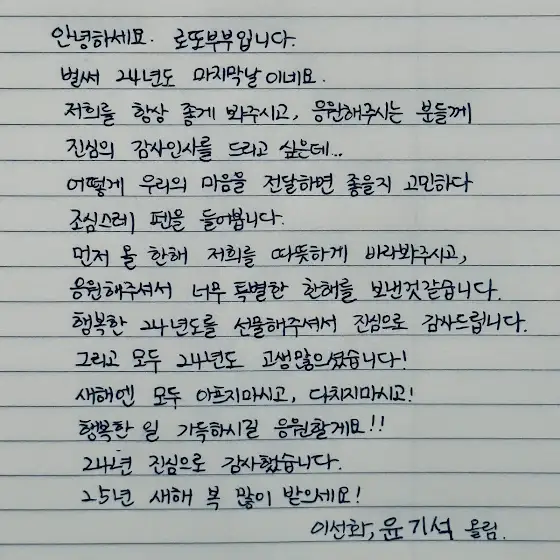 안녕하세요. 로또부부입니다.
벌써 24년도 마지막날이네요.
저희를 항상 좋게 봐주시고, 응원해주시는 분들께
진심의 감사인사를 드리고 싶은데...
어떻게 우리의 마음을 전달하면 좋을지 고민하다
조심스레 펜을 들어봅니다.
먼저 올 한해 저희를 따뜻하게 바라봐주시고,
응원해주셔서 너무 특별한 한해를 보낸것같습니다.
행복한 24년도를 선물해주셔서 진심으로 감사드립니다.
그리고 모두 24년도 고생많으셨습니다!
새해엔 모두 아프지마시고, 다치지마시고!
행복한 일 가득하시길 응원할게요!!
24년 진심으로 감사했습니다.
25년 새해 복 많이 받으세요!
이선화, 윤기석 올림.